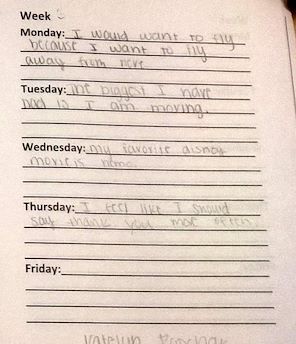 Week
Monday: I would want to fly
because I want to fly
away from here
Tuesday: The biggest I have
had is I am moving.
Wednesday: my favorite disney
movie is nemo.
Thursday: I feel like I should
say thank you more often
Friday:
Katelyn